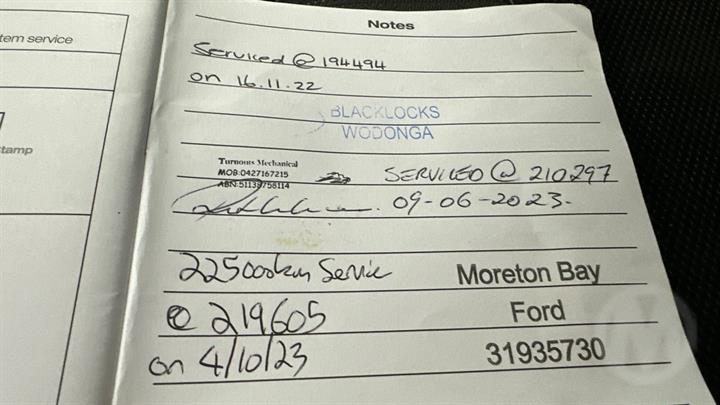 Notes
tem service
Serviced @ 194494
on 16.11.22
BLACKLOCKS
WODONGA
tamp
Turnouts Mechanical
MOB:0427167215
ABN:51139758114
SERVICED @ 210297
09-06-2023.
225000km Service
Moreton Bay
@ 219605
Ford
on 4/10/23
31935730